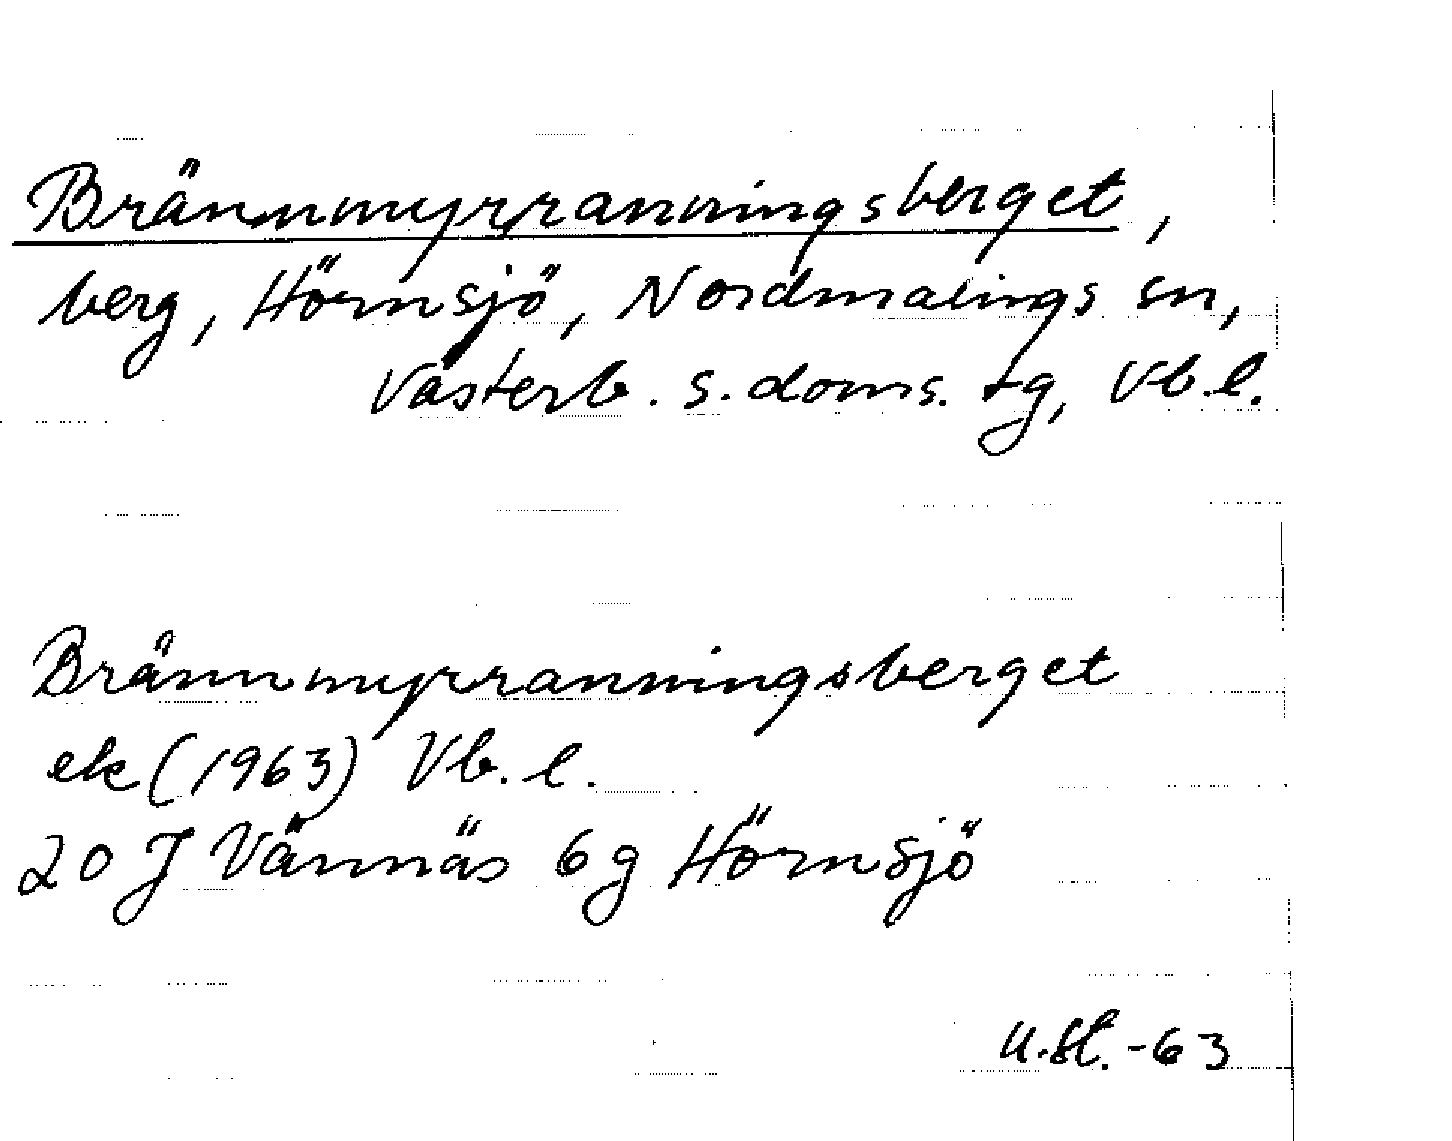 Brännmyrranningsberget,
berg, Hörnsjö, Nordmalings sn,
Västerb. s. doms. tg, Vb. l.
Brännmyrranningsberget
ek (1963) Vb. l.
20 J Vännäs 6 g Hörnsjö
U.St. -63